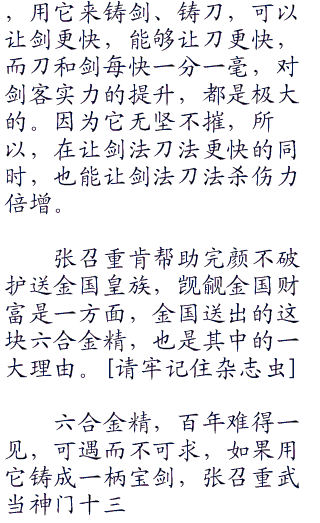 ，用它来铸剑、铸刀，可以
让剑更快，能够让刀更快，
而刀和剑每快一分一毫，对
剑客实力的提升，都是极大
的。因为它无坚不摧，所
以，在让剑法刀法更快的同
时，也能让剑法刀法杀伤力
倍增。
张召重肯帮助完颜不破
护送金国皇族，觊觎金国财
富是一方面，金国送出的这
块六合金精，也是其中的一
大理由。[请牢记住杂志虫]
六合金精，百年难得一
见，可遇而不可求，如果用
它铸成一柄宝剑，张召重武
当神门十三